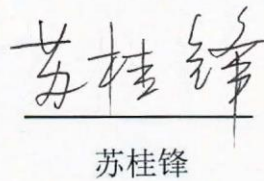 苏桂锋
苏桂锋